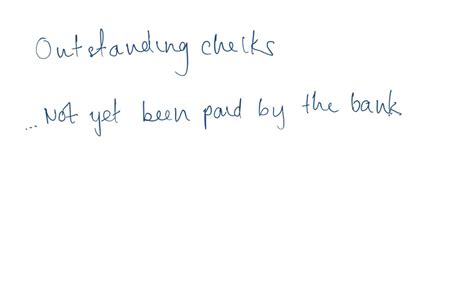 Outstanding checks
... Not yet been paid by the bank